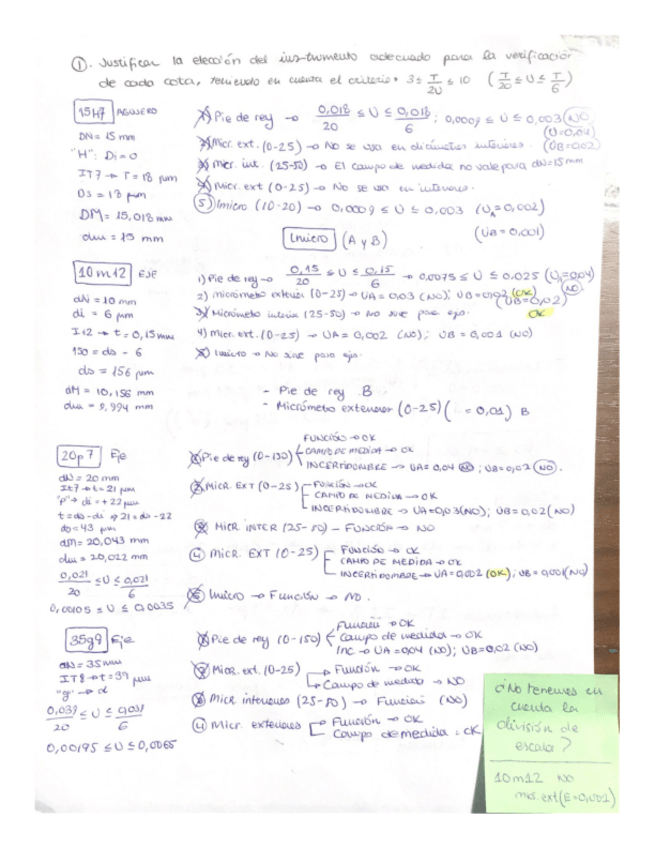 ①. Justificar la elección del instrumento adecuado para la verificación
de cada cota, teniendo en cuenta el criterio: 3 ≤ T/2U ≤ 10 (T/20 ≤ U ≤ T/6)
15H7 AGUJERO
DN = 15 mm
"H": Di = 0
IT7 → T = 18 μm
Ds = 18 μm
DM = 15,018 mm
dm = 15 mm
1) Pie de rey → 0,018/20 ≤ U ≤ 0,018/6 ; 0,0009 ≤ U ≤ 0,003 (NO)
(U=0,04)
(UB=0,02)
2) Micr. ext. (0-25) → No se usa en diámetros interiores.
3) Micr. int. (25-50) → El campo de medida no vale para dN=15 mm
4) Micr. ext (0-25) → No se usa en interiores.
5) Imicro (10-20) → 0,0009 ≤ U ≤ 0,003 (UA=0,002)
(UB=0,001)
Imicro (A y B)
10m12 EJE
dN = 10 mm
di = 6 μm
It2 → t = 0,15 mm
150 = ds - 6
ds = 156 μm
dM = 10,156 mm
dm = 9,994 mm
1) Pie de rey → 0,15/20 ≤ U ≤ 0,15/6 → 0,0075 ≤ U ≤ 0,025 (U=0,04) NO
2) micrómetro exterior (0-25) → UA=0,03 (NO); UB=0,02 (OK)
(UB=0,02) OK
3) Micrómetro interior (25-50) → No sirve para eje.
4) micr. ext. (0-25) → UA = 0,002 (NO); UB = 0,001 (NO)
5) Imicro → No sirve para eje.
- Pie de rey B
- Micrómetro exterior (0-25) ( = 0,01) B
20p7 Eje
dN = 20 mm
It7 → t = 21 μm
"p" → di = +22 μm
t = ds - di → 21 = ds - 22
ds = 43 μm
dM = 20,043 mm
dm = 20,022 mm
0,021/20 ≤ U ≤ 0,021/6
0,00105 ≤ U ≤ 0,0035
1) Pie de rey (0-150)
FUNCIÓN → OK
CAMPO DE MEDIDA → OK
INCERTIDUMBRE → UA=0,04 NO ; UB=0,02 (NO).
2) MICR. EXT (0-25)
FUNCIÓN → OK
CAMPO DE MEDIDA → OK
INCERTIDUMBRE → UA=0,03(NO); UB=0,02(NO)
3) MICR INTER (25-50) - FUNCIÓN → NO
4) MICR. EXT (0-25)
FUNCIÓN → OK
CAMPO DE MEDIDA → OK
INCERTIDUMBRE → UA=0,002 (OK); UB=0,001(NO)
5) Imicro → Función → NO.
35g9 Eje
dN = 35 mm
IT8 → t = 39 μm
"g" → d
0,039/20 ≤ U ≤ 0,039/6
0,00195 ≤ U ≤ 0,0065
1) Pie de rey (0-150)
Función → OK
Campo de medida → OK
INC → UA=0,04 (NO); UB=0,02 (NO)
2) Micr. ext. (0-25)
Función → OK
Campo de medida → NO
3) Micr interiores (25-50) → Función (NO)
4) Micr. exteriores
Función → OK
Campo de medida : OK
¿No tenemos en
cuenta la
división de
escala?
10m12 NO
mic. ext(E=0,001)